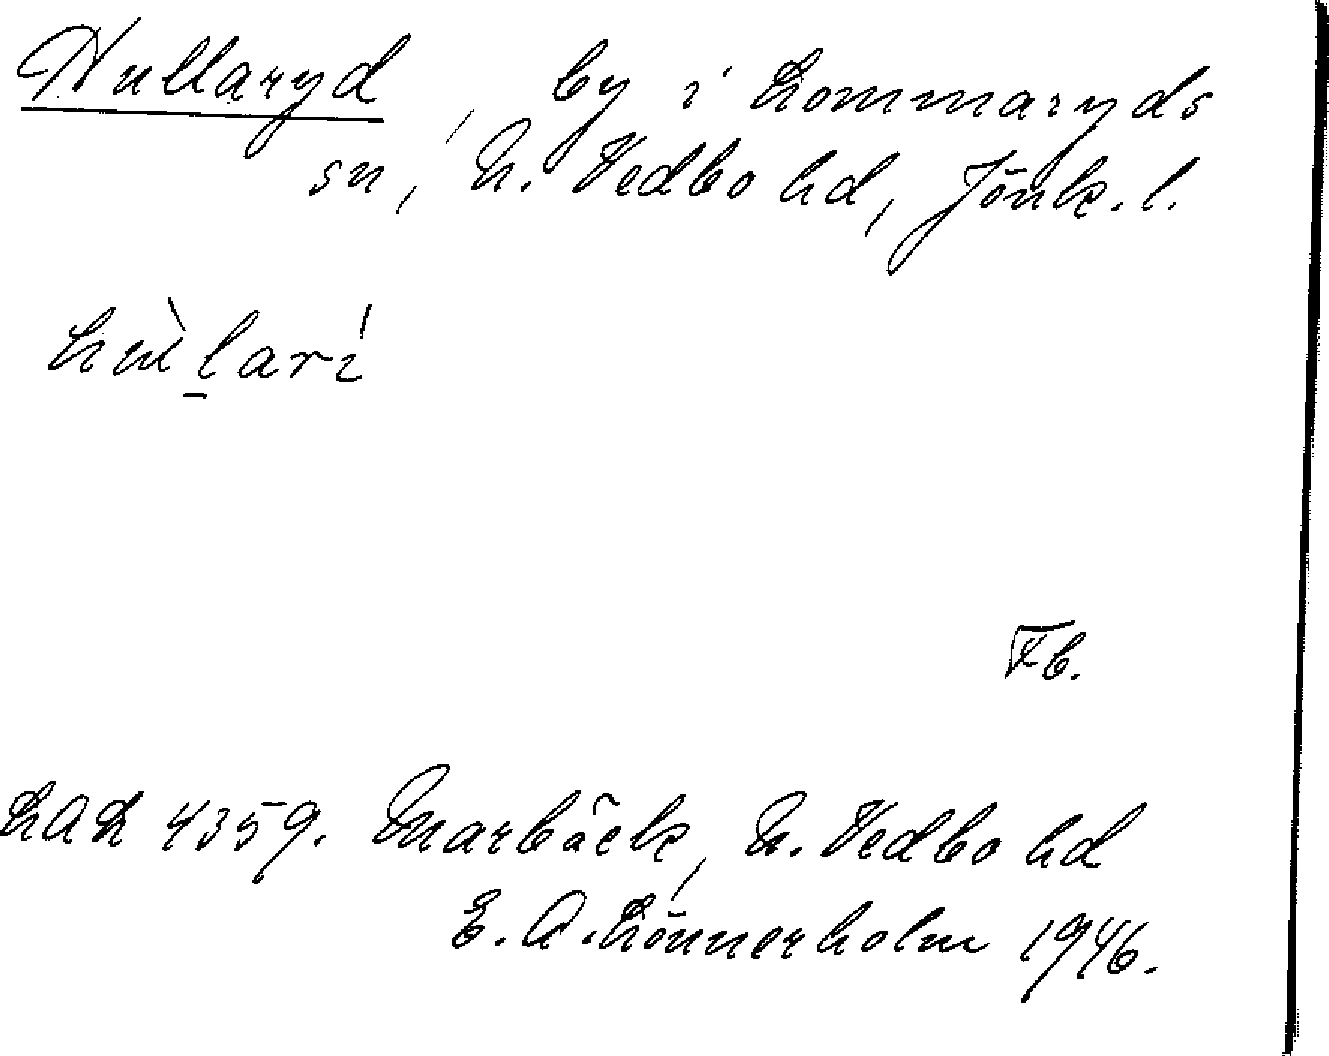 Hullaryd, by i Lommaryds
sn, N. Vedbo hd, Jönk. l.
hùlarí
Fb.
LAL 4359. Marbäck, N. Vedbo hd
E. A. Lönnerholm 1946.